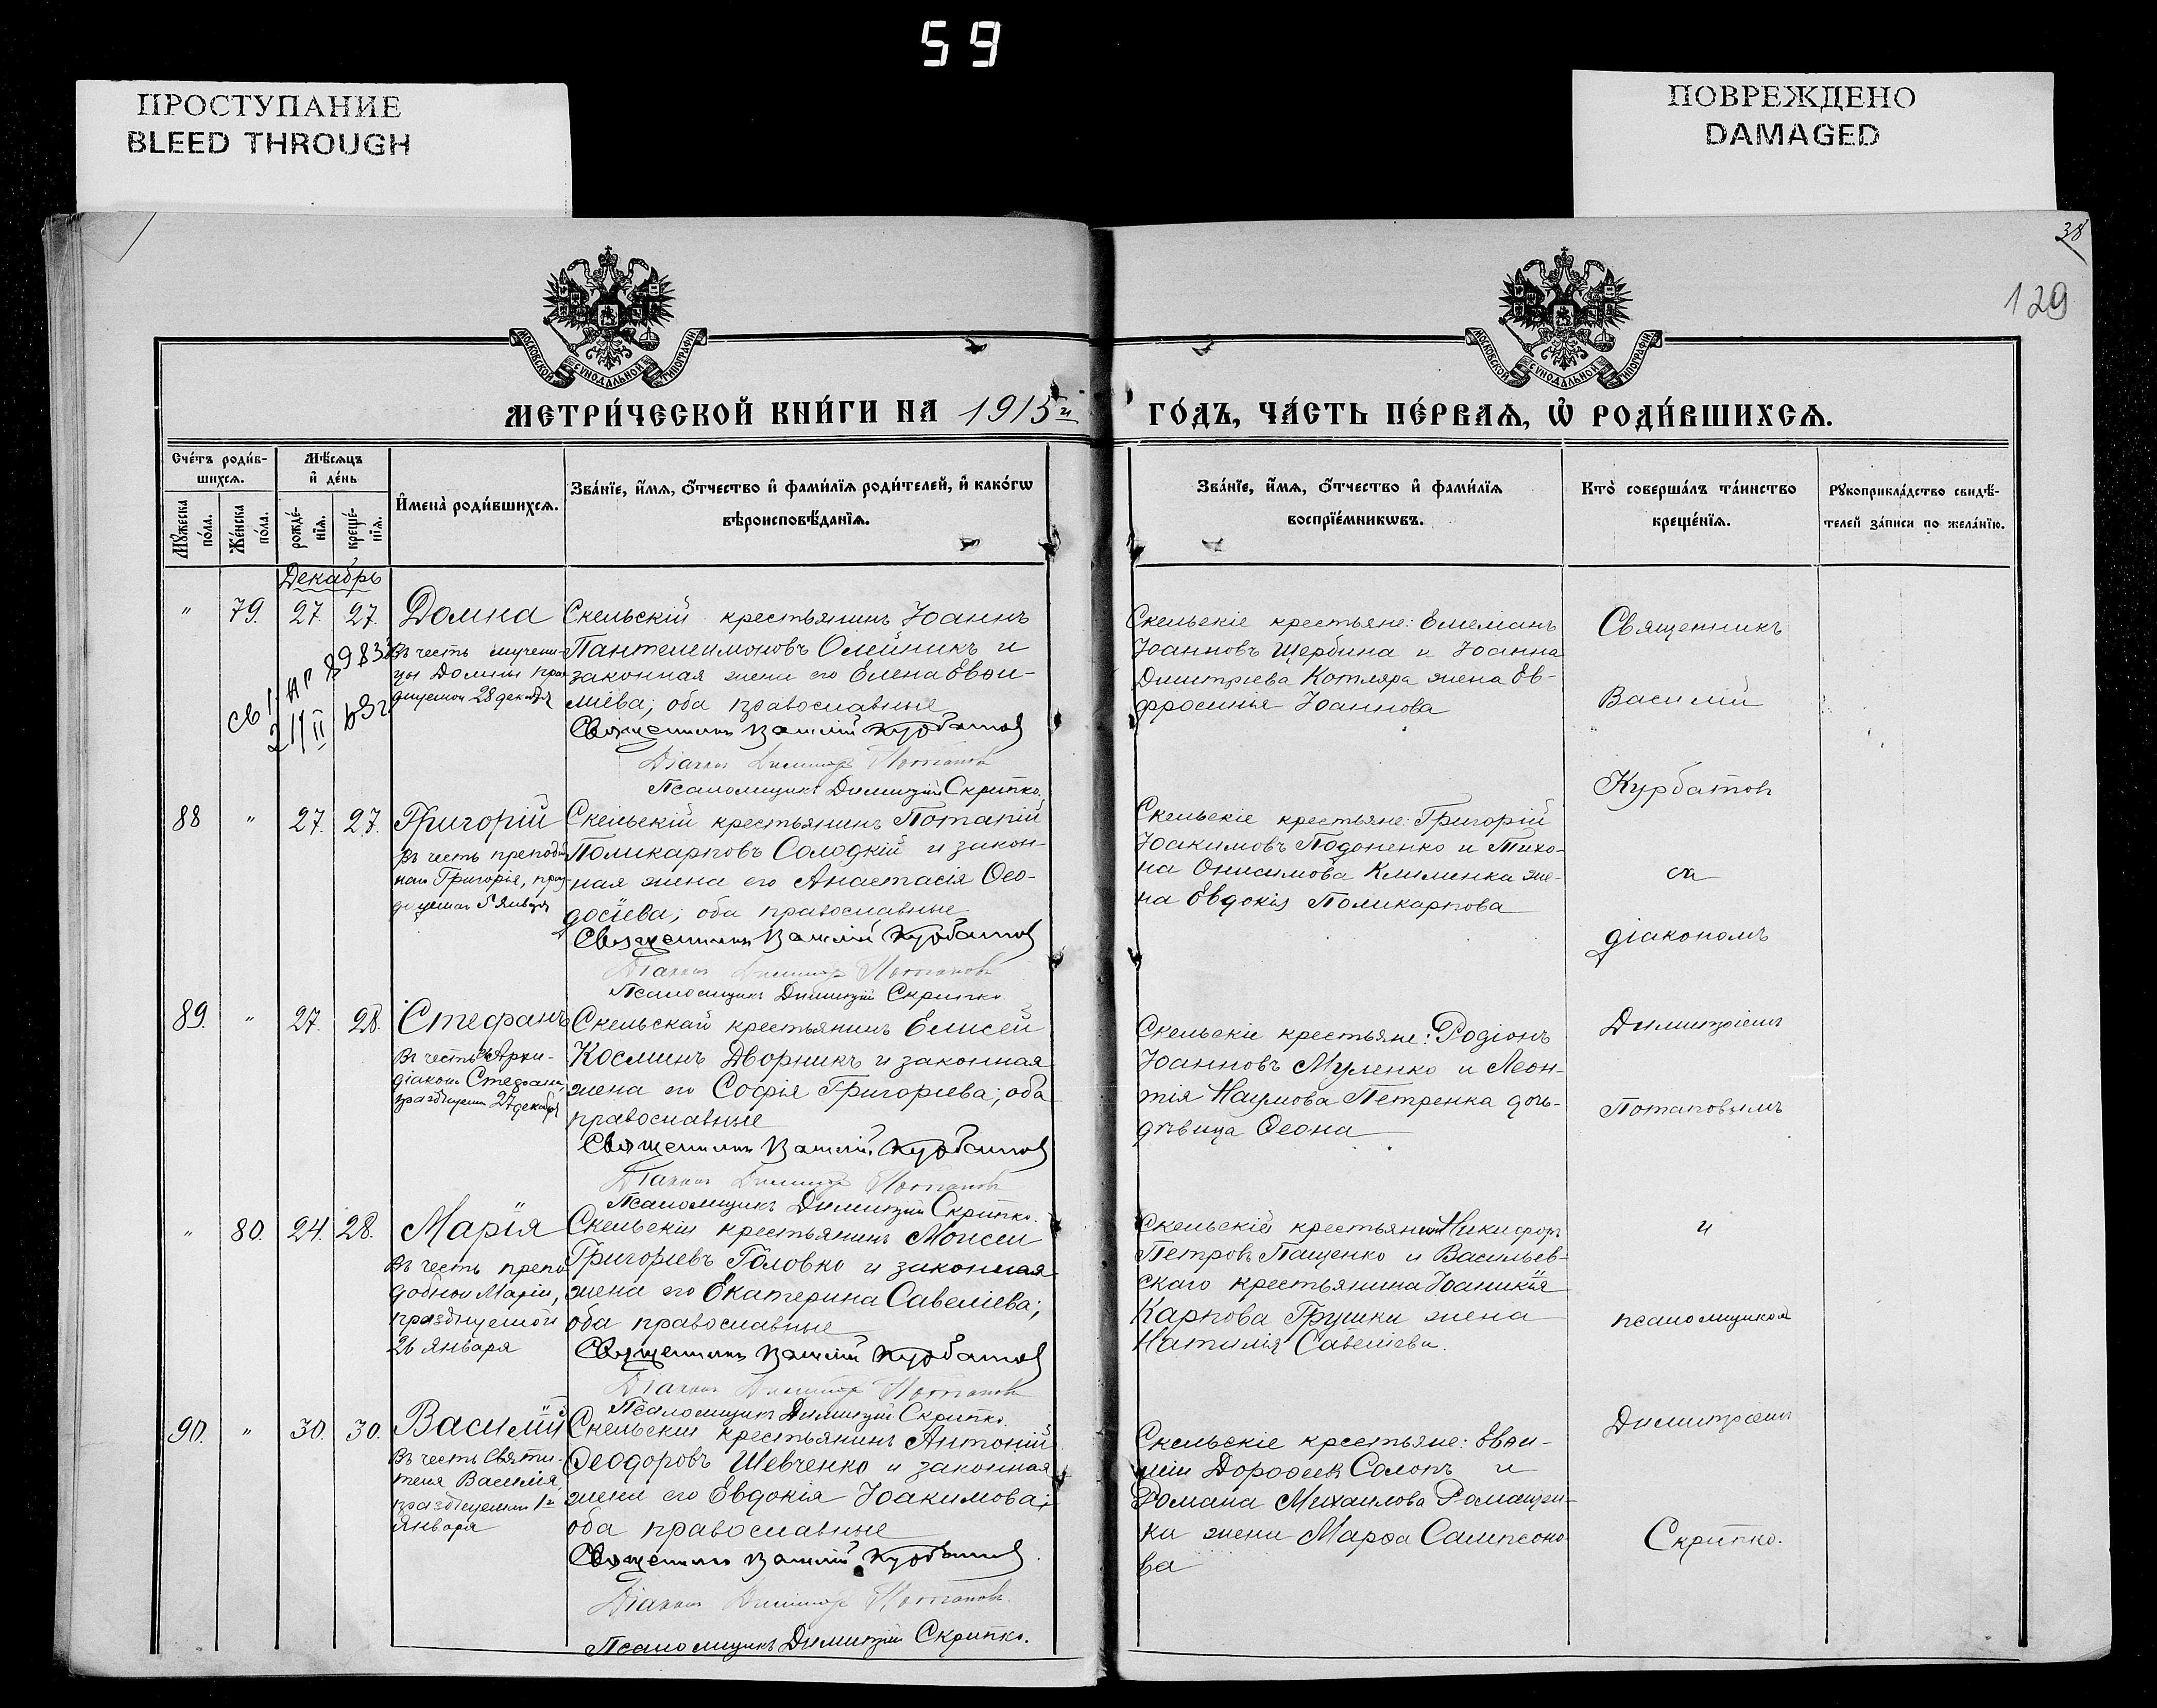 59
ПРОСТУПАНИЕ
BLEED THROUGH
ПОВРЕЖДЕНО
DAMAGED
38
129
МОСКОВСКОЙ СѴНОДАЛЬНОЙ ТИПОГРАФІИ
МОСКОВСКОЙ СѴНОДАЛЬНОЙ ТИПОГРАФІИ
МЕТРИ́ЧЕСКОЙ КНИ́ГИ НА 1915й
ГО́ДЪ, ЧА́СТЬ ПЕ́РВАѦ, Ѡ РОДИ́ВШИХСѦ.
Сче́тъ роди́в-
шихсѧ.
Мꙋ́жеска по́ла.
Же́нска по́ла.
Мѣ́сѧцъ
и҆ де́нь
рожде́-нїѧ.
креще́-нїѧ.
И҆мена̀ роди́вшихсѧ.
Зва́нїе, и҆́мѧ, ѻ҆́тчество и҆ фами́лїѧ роди́телей, и҆ како́гѡ
вѣроисповѣ́данїѧ.
Зва́нїе, и҆́мѧ, ѻ҆́тчество и҆ фами́лїѧ
воспрїе́мникѡвъ.
Кто̀ соверша́лъ та́инство
креще́нїѧ.
Рꙋкоприкла́дство свидѣ́-
телей за́писи по жела́нїю.
Декабрь
" 79. 27. 27. Домна
Въ честь мучени-
цы Домны праз-
днуемой 28 декабря
Скельскій крестьянинъ Іоаннъ
Пантелеимоновъ Олейникъ и
законная жена его Елена Евѳи-
міева; оба православные
Священникъ Василій Курбатов
Діаконъ Димитрій Потапов
Псаломщикъ Димитрій Скрипко.
Скельскіе крестьяне: Емеліанъ
Іоанновъ Щербина и Іоанна
Димитріева Котляра жена Ев-
фросинія Іоаннова
88 " 27. 27. Григорій
Въ честь преподоб-
наго Григорія, праз-
днуемаго 5 Января
Скельскій крестьянинъ Потапій
Поликарповъ Солодкій и закон-
ная жена его Анастасія Ѳео-
досіева; оба православные
Священникъ Василій Курбатов
Діаконъ Димитрій Потапов
Псаломщикъ Димитрій Скрипко.
Скельскіе крестьяне: Григорій
Іоакимовъ Подоненко и Тихо-
на Онисимова Клименка же-
на Евдокія Поликарпова
89. " 27. 28. Стефанъ
Въ честь Архи-
діакона Стефана,
празднуемаго 27 декабря
Скельскай крестьянинъ Елисей
Косминъ Дворникъ и законная
жена его Софія Григоріева; оба
православные
Священникъ Василій Курбатов
Діаконъ Димитрій Потапов
Псаломщикъ Димитрій Скрипко.
Скельскіе крестьяне: Родіонъ
Іоанновъ Муленко и Леон-
тія Наумова Петренка дочь-
дѣвица Ѳеона
" 80. 24. 28. Марія
Въ честь препо-
добной Маріи,
празднуемой
26 января
Скельскій крестьянинъ Моисей
Григоріевъ Головко и законная
жена его Екатерина Савеліева;
оба православные
Священникъ Василій Курбатов
Діаконъ Димитрій Потапов
Псаломщикъ Димитрій Скрипко.
Скельскій крестьянинъ Никифоръ
Петровъ Пащенко и Васильев-
скаго крестьянина Іоаникія
Карпова Грушки жена
Наталія Савеліева.
90. " 30. 30. Василій
Въ честь Святи-
теля Василія,
празднуемаго 1го
Января
Скельскій крестьянинъ Антоній
Ѳеодоровъ Шевченко и законная
жена его Евдокія Іоакимова;
оба православные
Священникъ Василій Курбатов
Діаконъ Димитрій Потапов.
Псаломщикъ Димитрій Скрипко.
Скельскіе крестьяне: Евѳи-
мій Дороѳеев Солопъ и
Романа Михаилова Романен-
ки жена Марѳа Сампсоно-
ва
Священникъ
Василій
Курбатовъ
съ
діакономъ
Димитріемъ
Потаповымъ
и
псаломщикомъ
Димитріемъ
Скрипко.